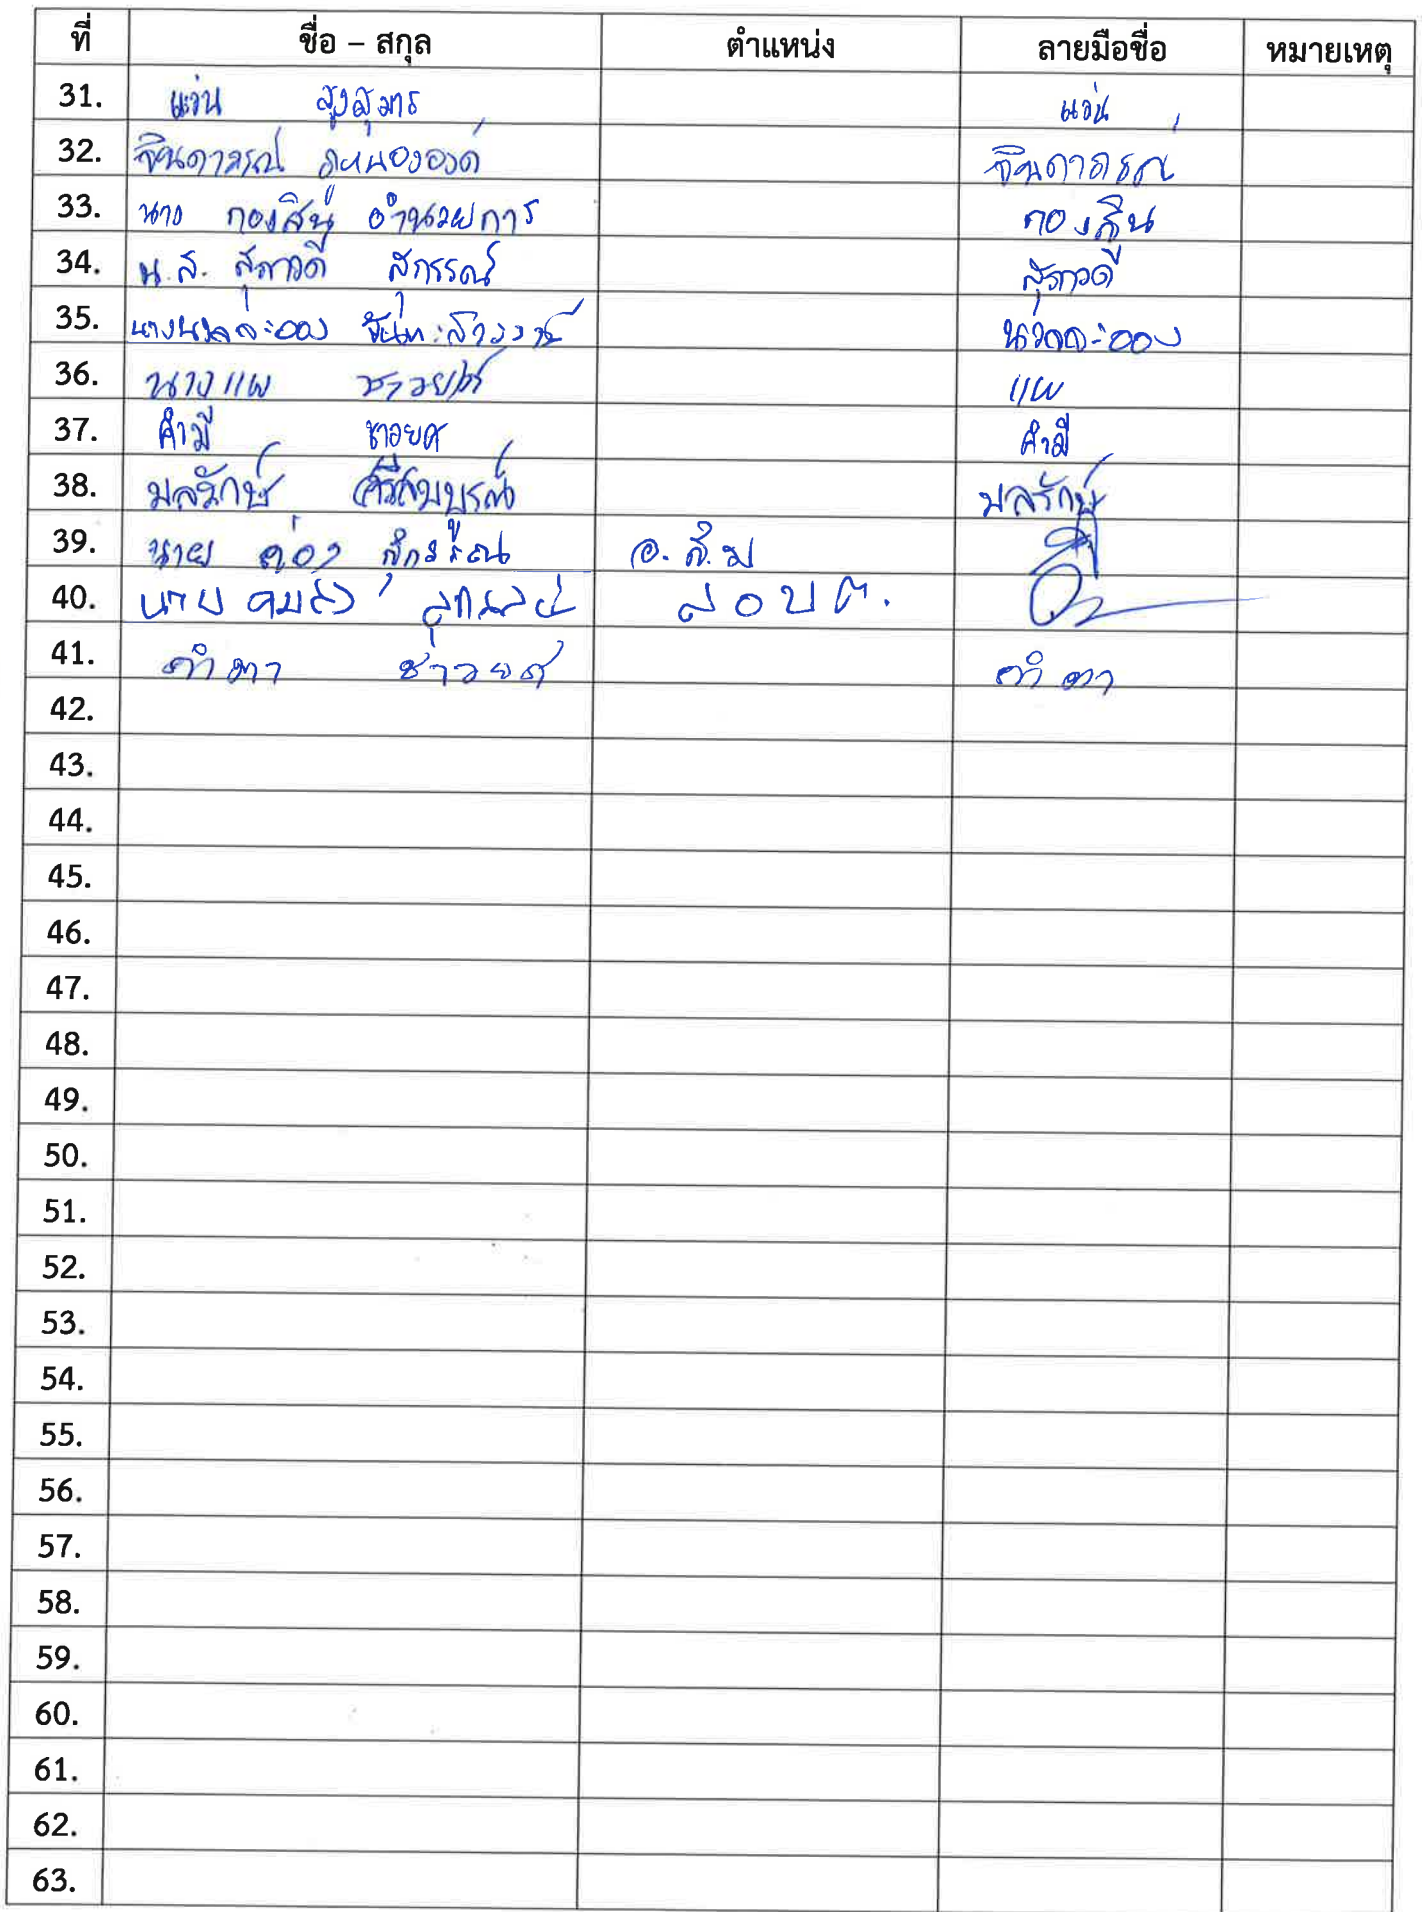 ที่ ชื่อ – สกุล ตำแหน่ง ลายมือชื่อ หมายเหตุ
31. แว่น สูงสุมาร แว่น
32. จินดาภรณ์ จินดาภรณ์
33. นาง กองสินธุ์ อำนวยการ กองสิน
34. น.ส. สุภาวดี สุกรรณ์ สุภาวดี
35. นางนวลละออง นวลละออง
36. นาง แพ ชาวยศ แพ
37. คำมี ชาวยศ คำมี
38. มลรักษ์ ศรีสมบูรณ์ มลรักษ์
39. นาย อ.ส.ม
40. นาย ส อ บ ต.
41. คำตา ชาวยศ คำตา
42.
43.
44.
45.
46.
47.
48.
49.
50.
51.
52.
53.
54.
55.
56.
57.
58.
59.
60.
61.
62.
63.